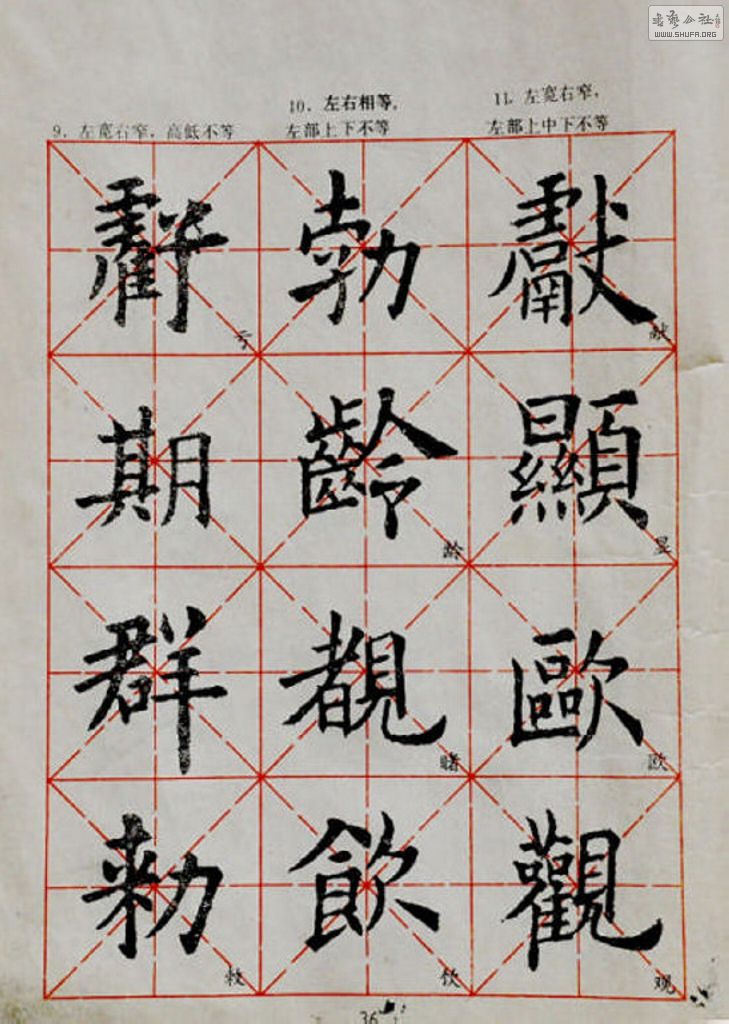 书艺公社
WWW.SHUFA.ORG
9. 左宽右窄,高低不等
10. 左右相等,
左部上下不等
11. 左宽右窄,
左部上中下不等
虧 勃 獻
亏 献
期 齡 顯
龄 显
群 覩 歐
睹 欧
勑 飲 觀
敕 饮 观
36